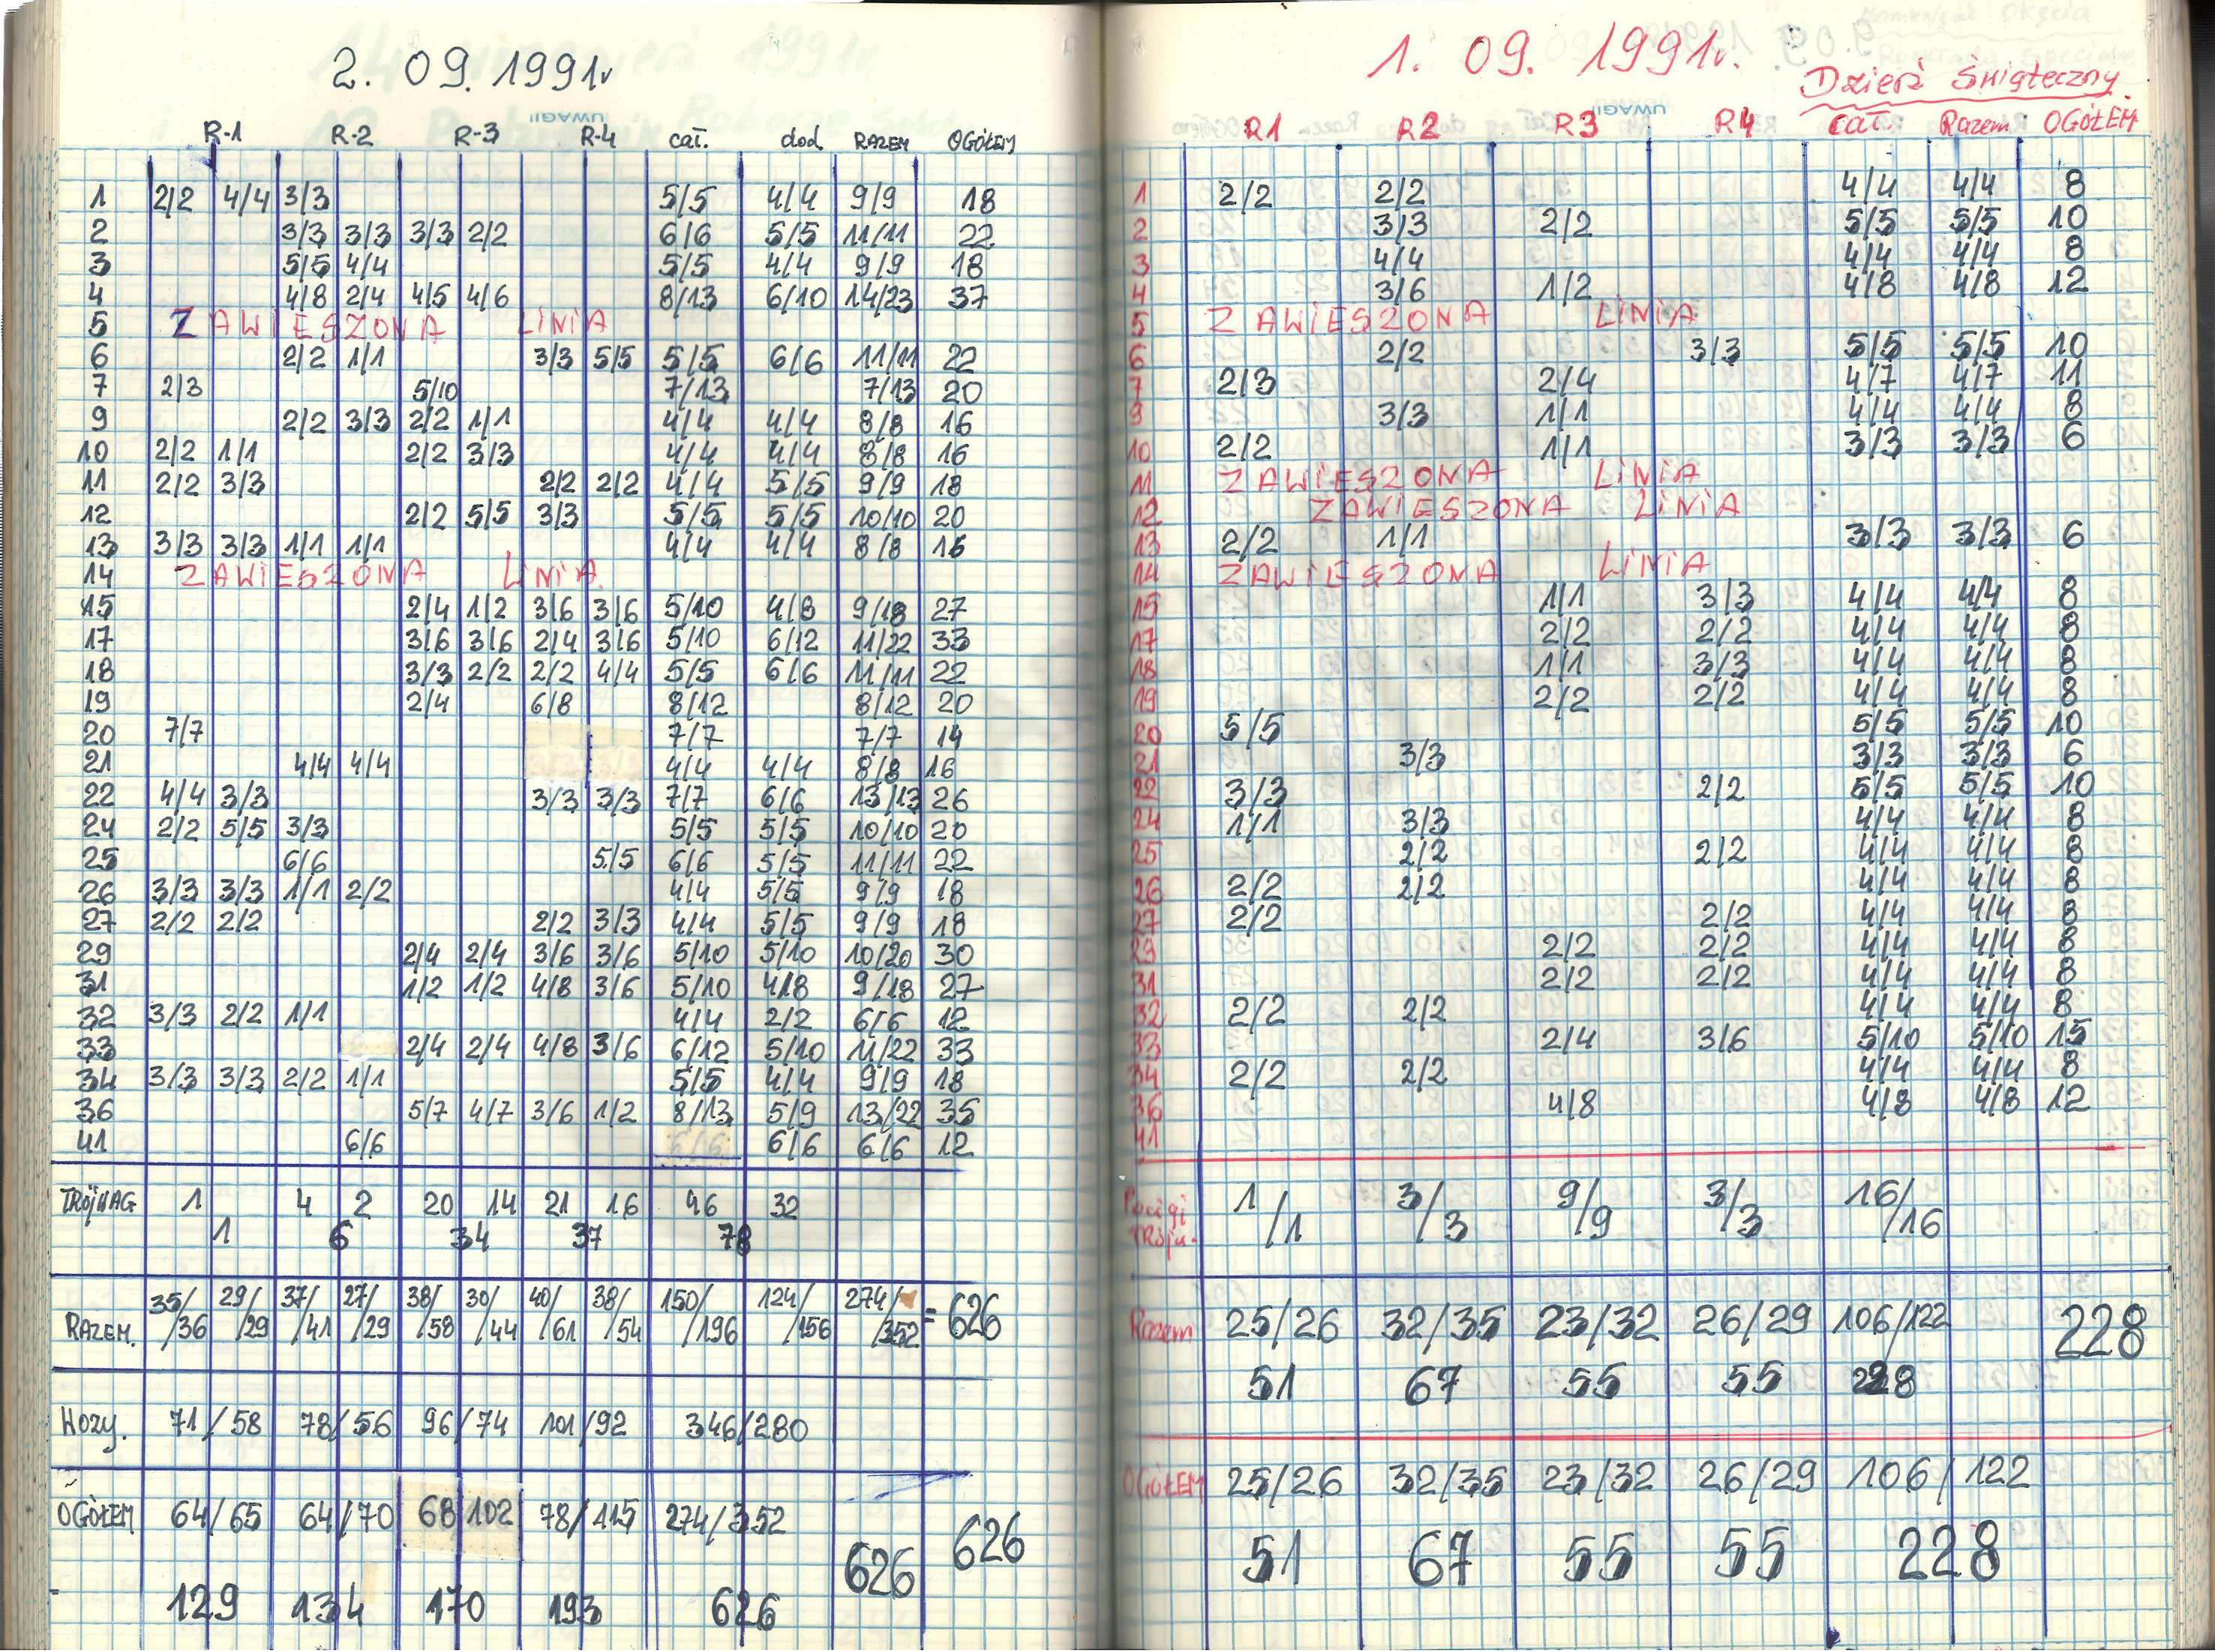 2. 09. 1991r
UWAGI!
R-1 R-2 R-3 R-4 cał. dod RAZEM OGÓŁEM
1 2/2 4/4 3/3 5/5 4/4 9/9 18
2 3/3 3/3 3/3 2/2 6/6 5/5 11/11 22
3 5/5 4/4 5/5 4/4 9/9 18
4 4/8 2/4 4/5 4/6 8/13 6/10 14/23 37
5 ZAWIESZONA LINIA
6 2/2 1/1 3/3 5/5 5/5 6/6 11/11 22
7 2/3 5/10 7/13 7/13 20
9 2/2 3/3 2/2 1/1 4/4 4/4 8/8 16
10 2/2 1/1 2/2 3/3 4/4 4/4 8/8 16
11 2/2 3/3 2/2 2/2 4/4 5/5 9/9 18
12 2/2 5/5 3/3 5/5 5/5 10/10 20
13 3/3 3/3 1/1 1/1 4/4 4/4 8/8 16
14 ZAWIESZONA LINIA
15 2/4 1/2 3/6 3/6 5/10 4/8 9/18 27
17 3/6 3/6 2/4 3/6 5/10 6/12 11/22 33
18 3/3 2/2 2/2 4/4 5/5 6/6 11/11 22
19 2/4 6/8 8/12 8/12 20
20 7/7 7/7 7/7 14
21 4/4 4/4 4/4 4/4 8/8 16
22 4/4 3/3 3/3 3/3 7/7 6/6 13/13 26
24 2/2 5/5 3/3 5/5 5/5 10/10 20
25 6/6 5/5 6/6 5/5 11/11 22
26 3/3 3/3 1/1 2/2 4/4 5/5 9/9 18
27 2/2 2/2 2/2 3/3 4/4 5/5 9/9 18
29 2/4 2/4 3/6 3/6 5/10 5/10 10/20 30
31 1/2 1/2 4/8 3/6 5/10 4/8 9/18 27
32 3/3 2/2 1/1 4/4 2/2 6/6 12
33 2/4 2/4 4/8 3/6 6/12 5/10 11/22 33
34 3/3 3/3 2/2 1/1 5/5 4/4 9/9 18
36 5/7 4/7 3/6 1/2 8/13 5/9 13/22 35
41 6/6 6/6 6/6 12
TRÓJWAG 1 4 2 20 14 21 16 46 32
1 6 34 37 78
RAZEM. 35/36 29/29 37/41 27/29 38/58 30/44 40/61 38/54 150/196 124/156 274/352 = 626
Wozy. 71/58 78/56 96/74 101/92 346/280
OGÓŁEM 64/65 64/70 68 102 78/115 274/352 626 626
129 134 170 193 626
1. 09. 1991r.
Dzień świąteczny
UWAGI!
R1 R2 R3 R4 cał. Razem OGÓŁEM
1 2/2 2/2 4/4 4/4 8
2 3/3 2/2 5/5 5/5 10
3 4/4 4/4 4/4 8
4 3/6 1/2 4/8 4/8 12
5 ZAWIESZONA LINIA
6 2/2 3/3 5/5 5/5 10
7 2/3 2/4 4/7 4/7 11
9 3/3 1/1 4/4 4/4 8
10 2/2 1/1 3/3 3/3 6
11 ZAWIESZONA LINIA
12 ZAWIESZONA LINIA
13 2/2 1/1 3/3 3/3 6
14 ZAWIESZONA LINIA
15 1/1 3/3 4/4 4/4 8
17 2/2 2/2 4/4 4/4 8
18 1/1 3/3 4/4 4/4 8
19 2/2 2/2 4/4 4/4 8
20 5/5 5/5 5/5 10
21 3/3 3/3 3/3 6
22 3/3 2/2 5/5 5/5 10
24 1/1 3/3 4/4 4/4 8
25 2/2 2/2 4/4 4/4 8
26 2/2 2/2 4/4 4/4 8
27 2/2 2/2 4/4 4/4 8
29 2/2 2/2 4/4 4/4 8
31 2/2 2/2 4/4 4/4 8
32 2/2 2/2 4/4 4/4 8
33 2/4 3/6 5/10 5/10 15
34 2/2 2/2 4/4 4/4 8
36 4/8 4/8 4/8 12
41
Pociągi trójw. 1/1 3/3 9/9 3/3 16/16
Razem 25/26 32/35 23/32 26/29 106/122 228
51 67 55 55 228
OGÓŁEM 25/26 32/35 23/32 26/29 106/122
51 67 55 55 228